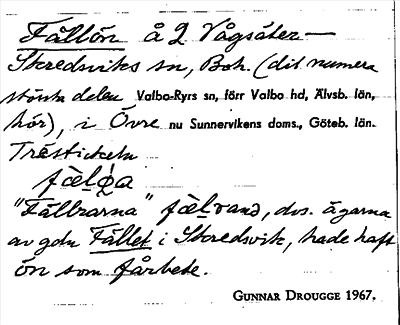 Fällön å 2 Vågsäter —
Skredsviks sn, Boh. (dit numera
största delen Valbo-Ryrs sn, förr Valbo hd, Älvsb. län,
hör), i Övre nu Sunnervikens doms., Göteb. län.
Trestickeln
"Fällarna" dvs. ägarna
av gdn Fället i Skredsvik, hade haft
ön som fårbete.
GUNNAR DROUGGE 1967.